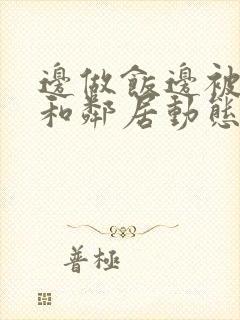 邊做飯邊被
和鄰居動態
普極